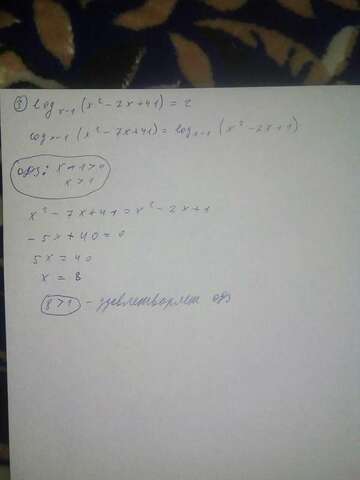 ③ log x-1 (x² - 7x + 41) = 2
log x-1 (x² - 7x + 41) = log x-1 (x² - 2x + 1)
ОДЗ: x - 1 > 0
x > 1
x² - 7x + 41 = x² - 2x + 1
- 5x + 40 = 0
5x = 40
x = 8
8 > 1 - удовлетворяет одз